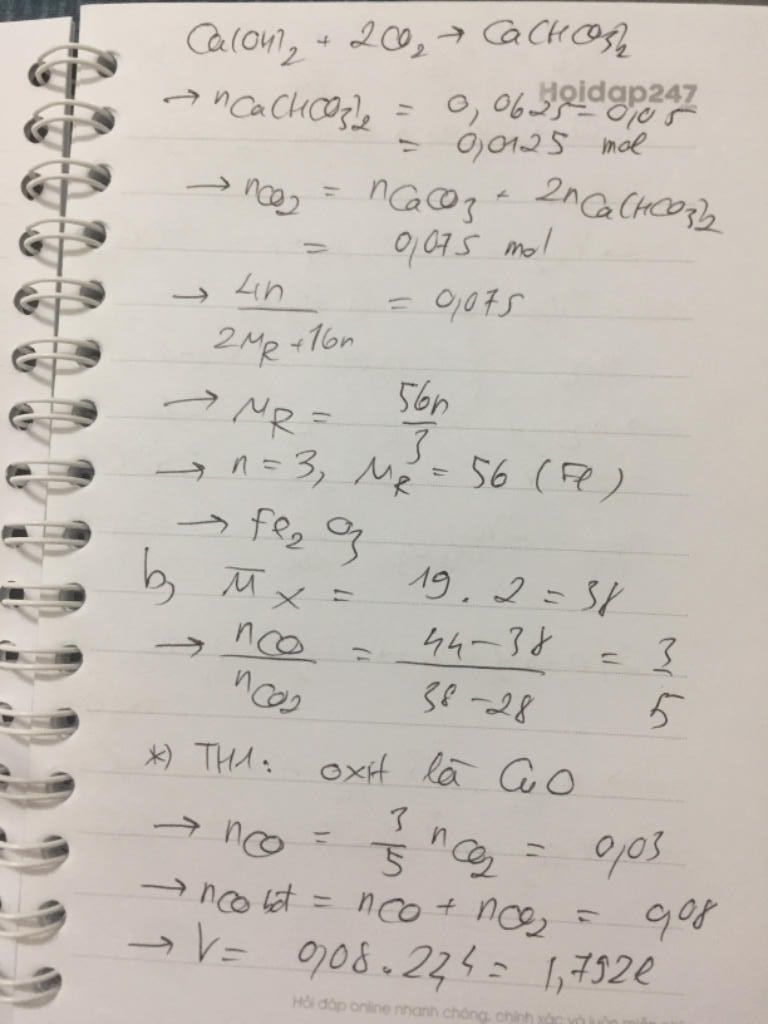 Ca(OH)₂ + 2CO₂ → Ca(HCO₃)₂
Hoidap247
→ nCa(HCO₃)₂ = 0,0625 - 0,05
= 0,0125 mol
→ nCO₂ = nCaCO₃ + 2nCa(HCO₃)₂
= 0,075 mol
→ 4n / (2M_R + 16n) = 0,075
→ M_R = 56n / 3
→ n = 3, M_R = 56 (Fe)
→ Fe₂O₃
b, M̅x = 19 . 2 = 38
→ nCO / nCO₂ = (44 - 38) / (38 - 28) = 3 / 5
*) TH1: oxit là CuO
→ nCO = 3/5 nCO₂ = 0,03
→ nCO bđ = nCO + nCO₂ = 0,08
→ V = 0,08 . 22,4 = 1,792l
Hỏi đáp online nhanh chóng, chính xác và luôn miễn phí